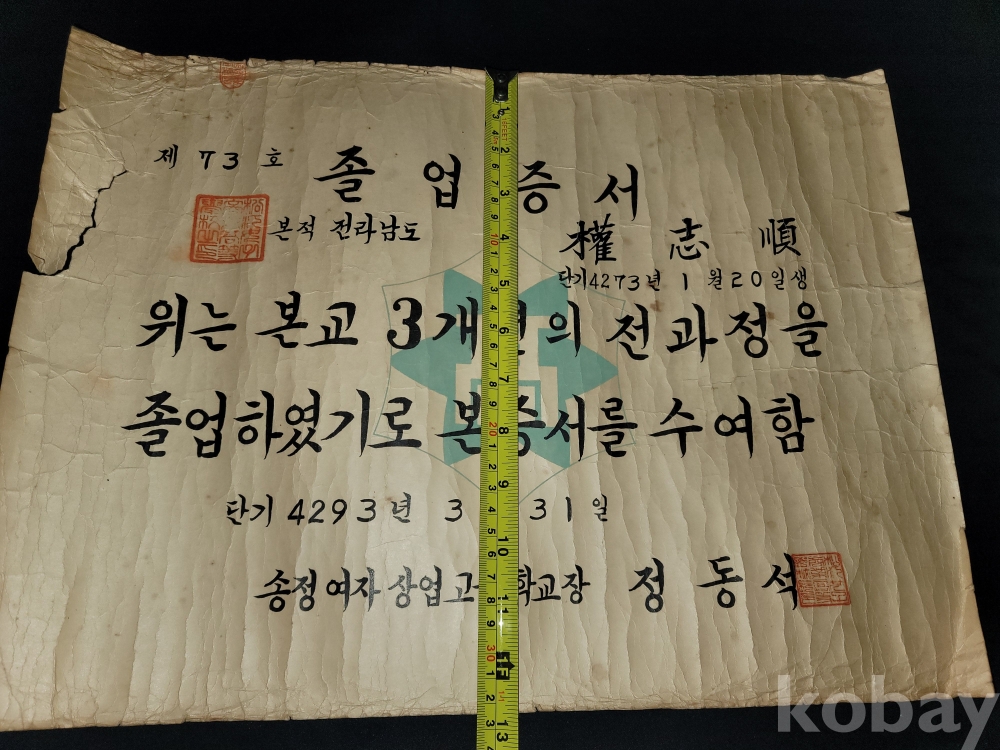 제 73 호
졸업증서
본적 전라남도
權志順
단기4273년 1월20일생
위는 본교 3개 의 전과정을
졸업하였기로 본증서를 수여함
단기 4293년 3 31일
송정여자상업고 학교장 정동석
kobay